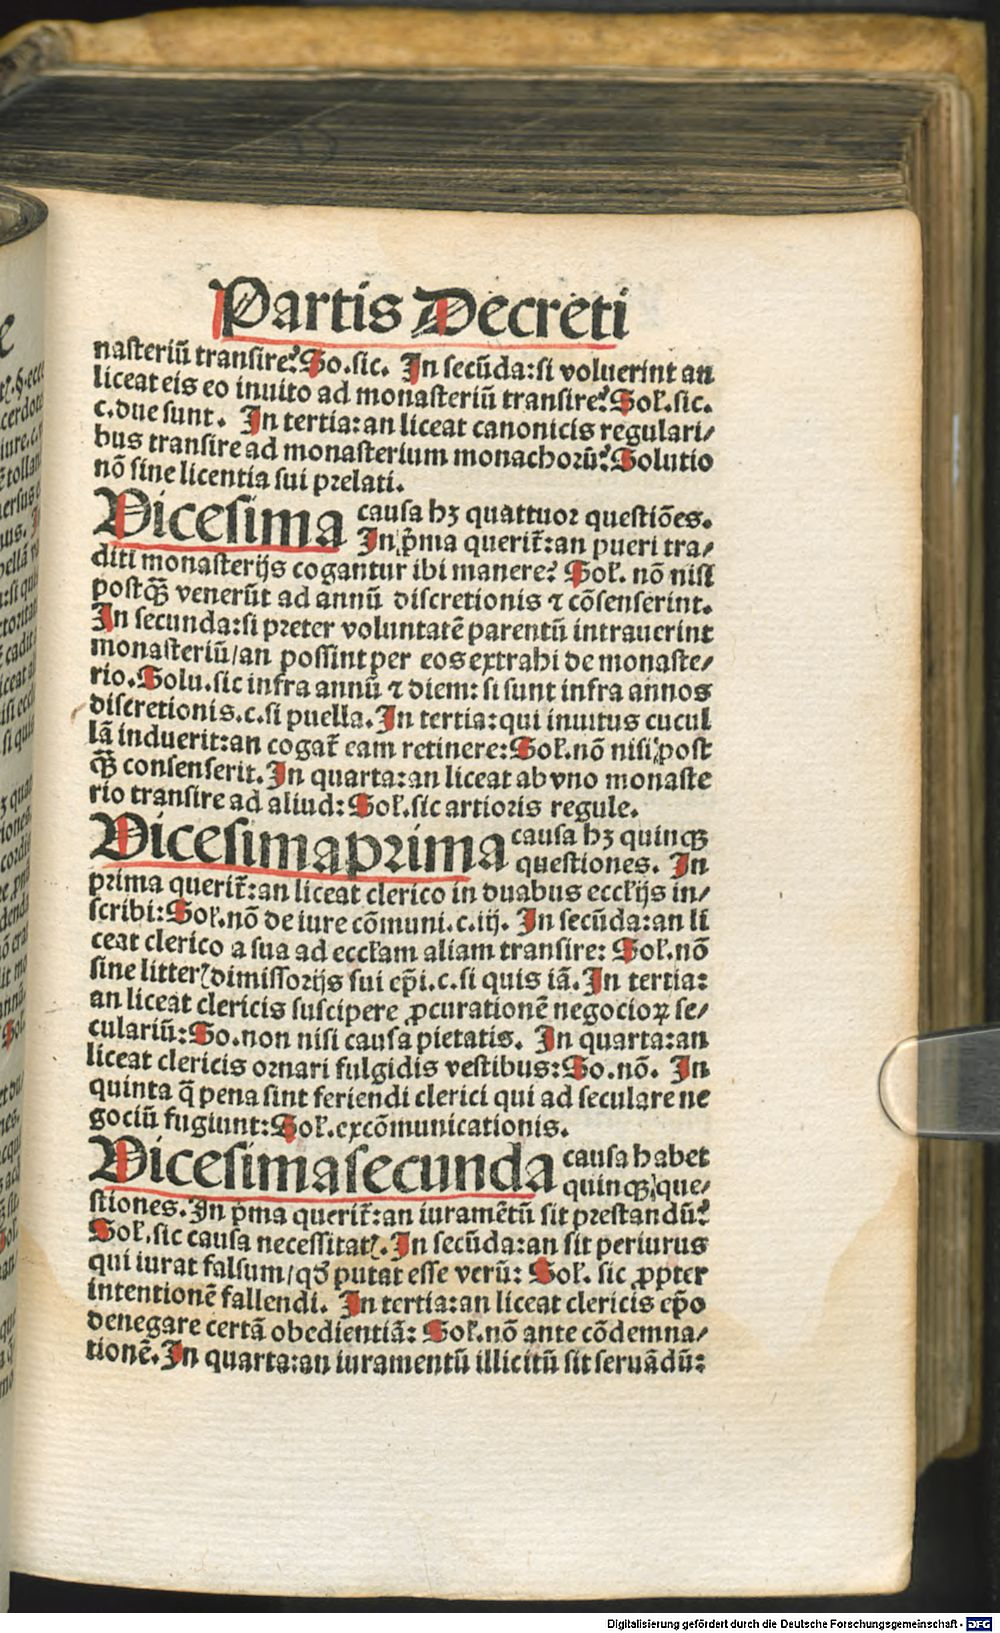 Partis Decreti
nasteriū transire? So.sic. In secūda: si voluerint an
liceat eis eo inuito ad monasteriū transire? Sol̄.sic.
c.due sunt. In tertia: an liceat canonicis regulari/
bus transire ad monasterium monachorū? Solutio
nō sine licentia sui prelati.
Vicesima causa hꝫ quattuor questiōes.
In p̄ma querit̄: an pueri tra/
diti monasterijs cogantur ibi manere? Sol̄. nō nisi
postqȝ̄ venerūt ad annū discretionis ⁊ cōsenserint.
In secunda: si preter voluntatē parentū intrauerint
monasteriū/an possint per eos extrahi de monaste/
rio. Solu.sic infra annū ⁊ diem: si sunt infra annos
discretionis.c.si puella. In tertia: qui inuitus cucul
lā induerit: an cogat̄ eam retinere: Sol̄.nō nisi post
qȝ̄ consenserit. In quarta: an liceat ab vno monaste
rio transire ad aliud: Sol̄.sic artioris regule.
Vicesimaprima causa hꝫ quinqȝ
questiones. In
prima querit̄: an liceat clerico in duabus eccl̄ijs in/
scribi: Sol̄.nō de iure cōmuni.c.iij. In secūda: an li
ceat clerico a sua ad eccl̄am aliam transire: Sol̄.nō
sine litterꝭ dimissorijs sui ep̄i.c.si quis iā. In tertia:
an liceat clericis suscipere ꝓcurationē negocioꝝ se/
culariū: So.non nisi causa pietatis. In quarta: an
liceat clericis ornari fulgidis vestibus: So.nō. In
quinta q̄ pena sint feriendi clerici qui ad seculare ne
gociū fugiunt: Sol̄.excōmunicationis.
Vicesimasecunda causa habet
quinqȝ que/
stiones. In p̄ma querit̄: an iuramētū sit prestandū?
Sol̄.sic causa necessitatꝭ. In secūda: an sit periurus
qui iurat falsum/qḋ putat esse verū: Sol̄. sic ꝓpter
intentionē fallendi. In tertia: an liceat clericis ep̄o
denegare certā obedientiā: Sol̄.nō ante cōdemna/
tionē. In quarta: an iuramentū illicitū sit seruādū:
Digitalisierung gefördert durch die Deutsche Forschungsgemeinschaft - DFG